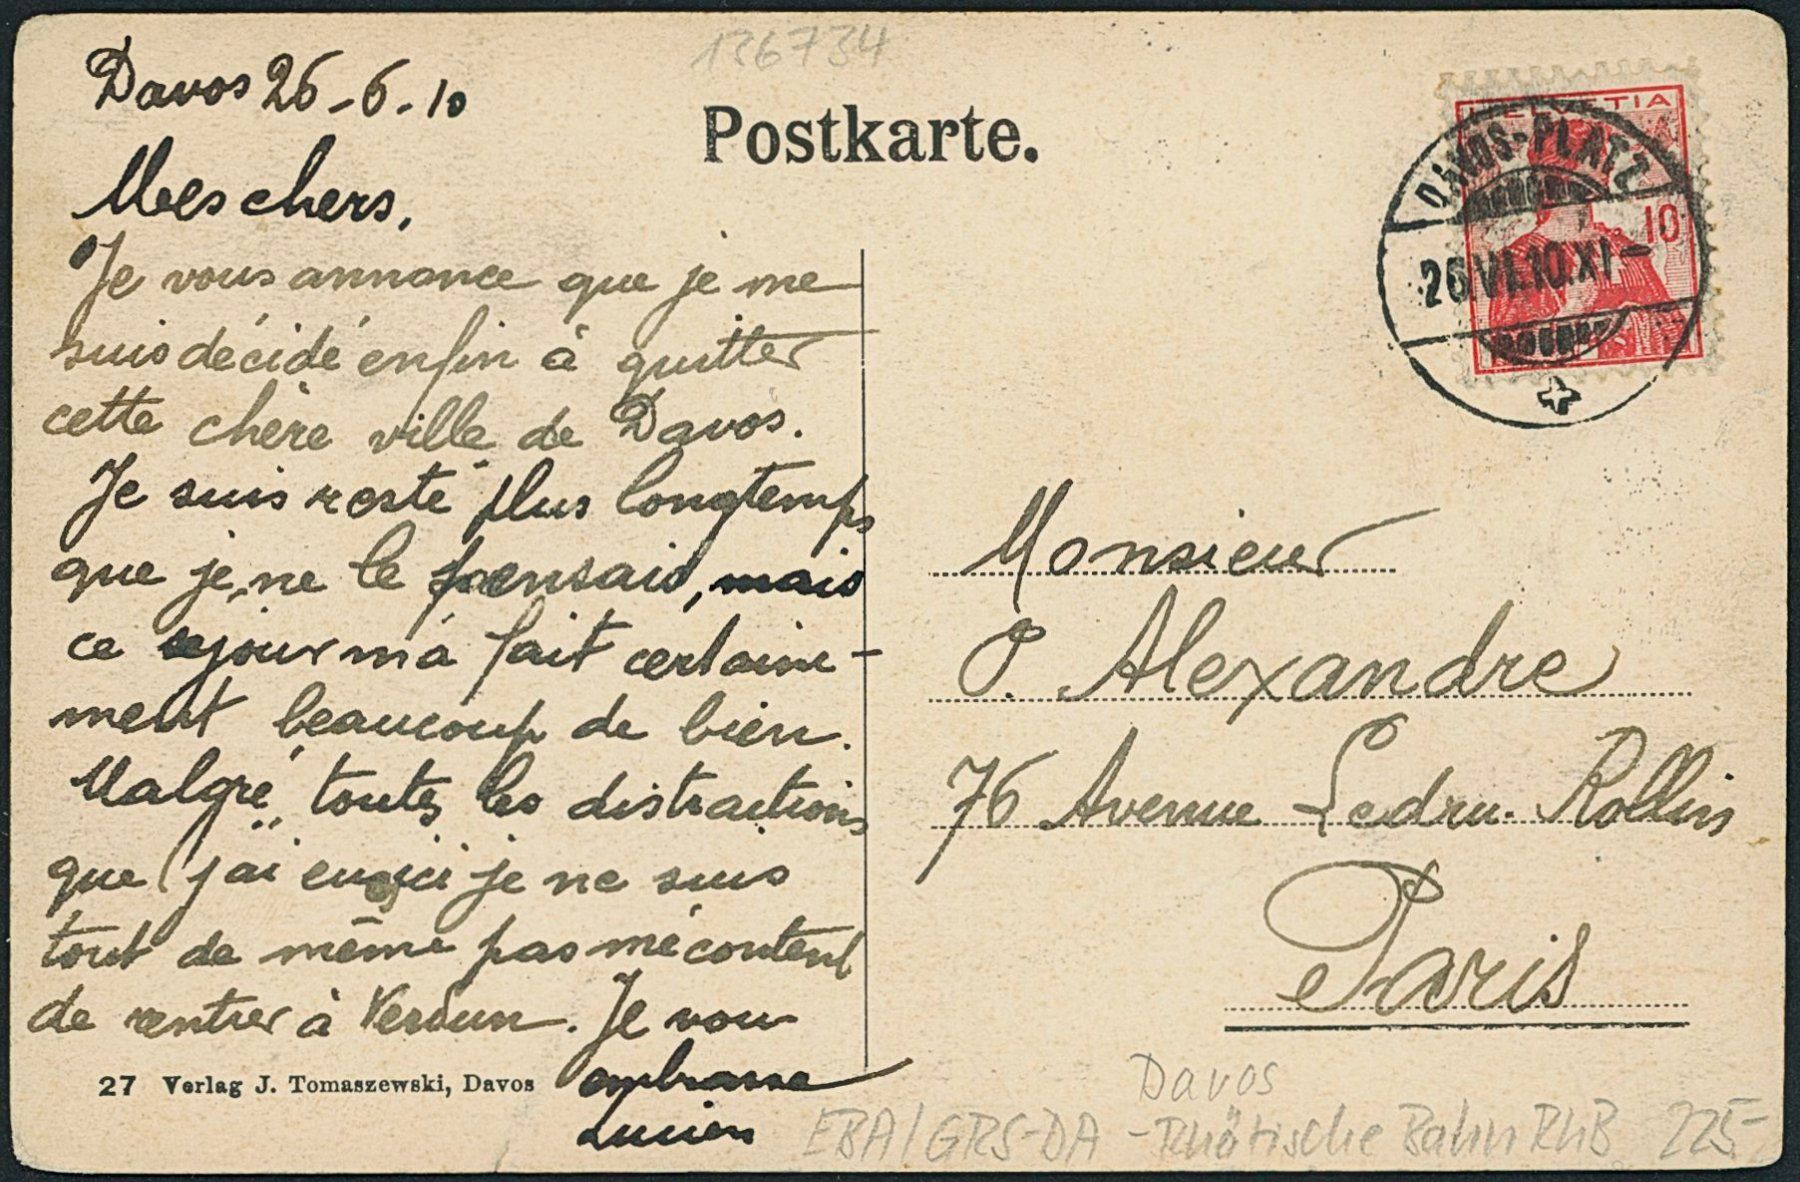 136734
Davos 26-6-10
Postkarte.
HELVETIA
10
DAVOS-PLATZ
26.VI.10.XI-
Mes chers,
Je vous annonce que je me
suis décidé enfin à quitter
cette chère ville de Davos.
Je suis resté plus longtemps
que je ne le pensais, mais
ce sejour m'a fait certaine-
ment beaucoup de bien.
Malgré toutes les distractions
que j'ai eu ici je ne suis
tout de même pas mécontent
de rentrer à Verdun. Je vous
embrasse
Lucien
27 Verlag J. Tomaszewski, Davos
Monsieur
O. Alexandre
76 Avenue Ledru-Rollin
Paris
Davos
EBA/GRS-DA - Rhätische Bahn RhB 225-